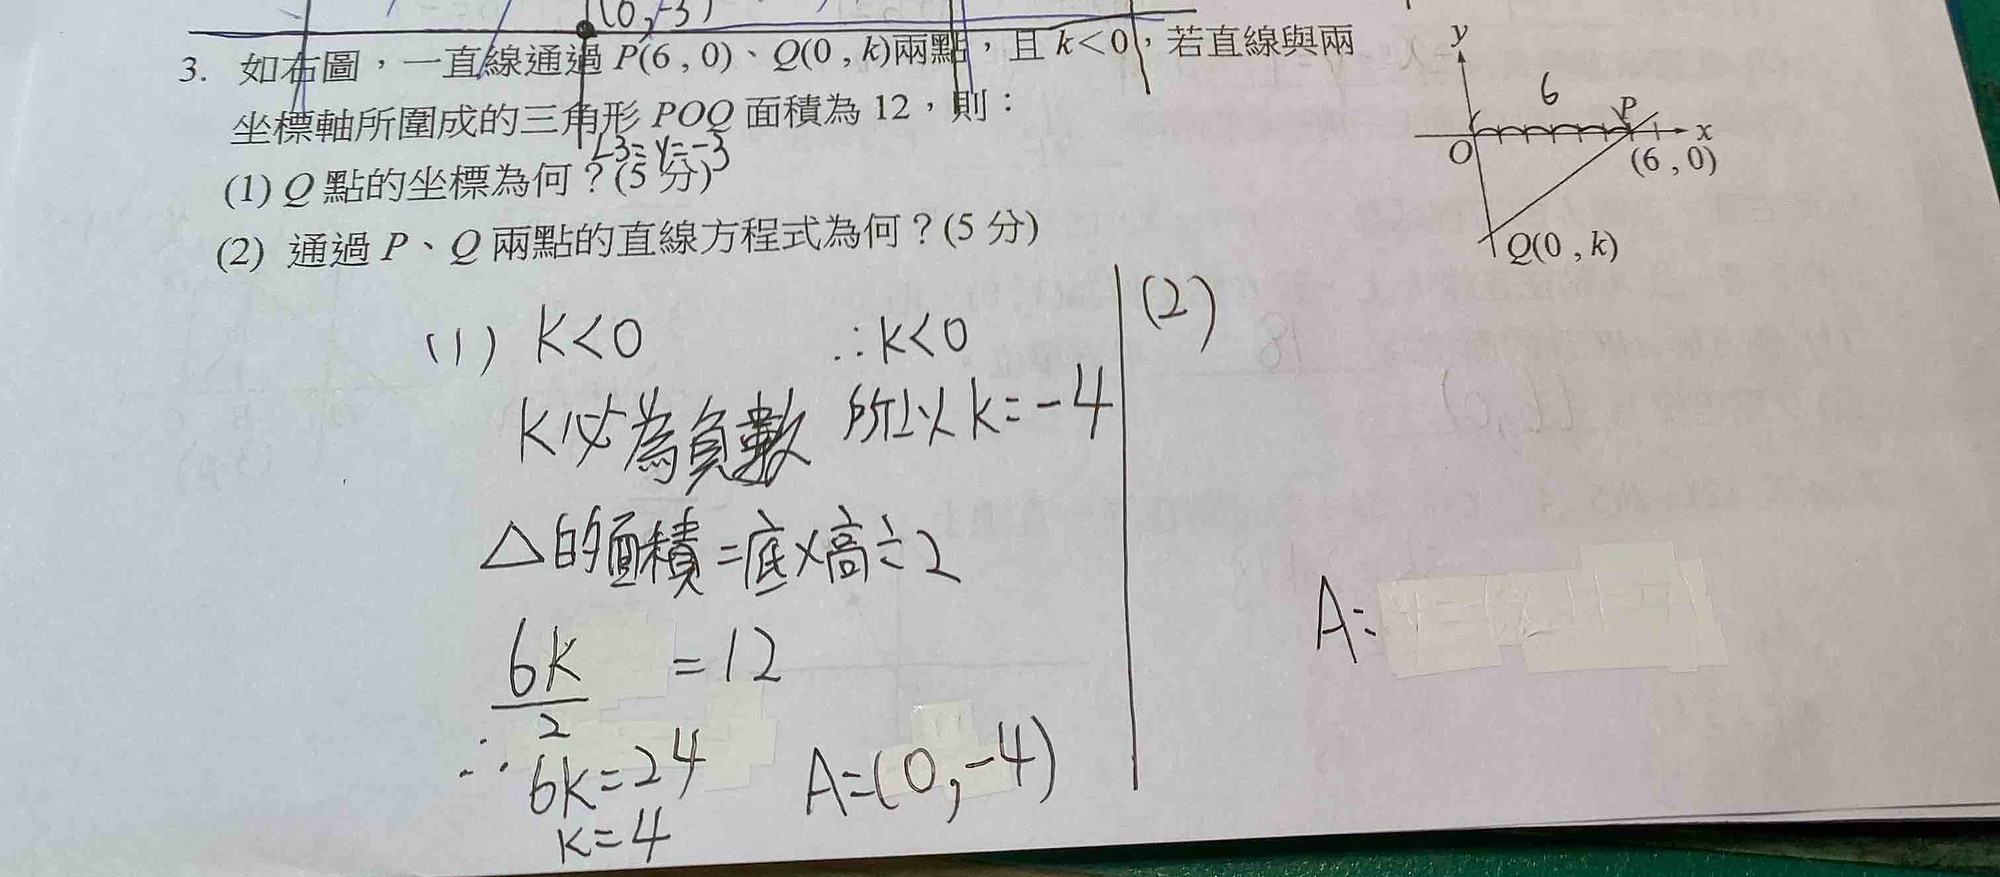 (0,-3)
3. 如右圖，一直線通過 P(6 , 0)、Q(0 , k)兩點，且 k＜0，若直線與兩
坐標軸所圍成的三角形 POQ 面積為 12，則：
L3= y=-3
(1) Q 點的坐標為何？(5 分)
(2) 通過 P、Q 兩點的直線方程式為何？(5 分)
y
6
P
O
x
(6 , 0)
Q(0 , k)
(1) K<0
K必為負數
△的面積=底×高÷2
6K/2 =12
∴ 6k=24
k=4
∴k<0
所以k=-4
A=(0,-4)
(2)
A=